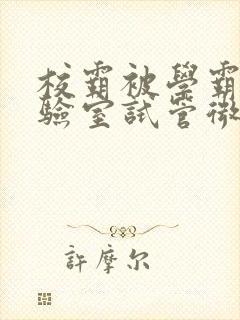 校霸被學霸
驗室試管微
許摩尔